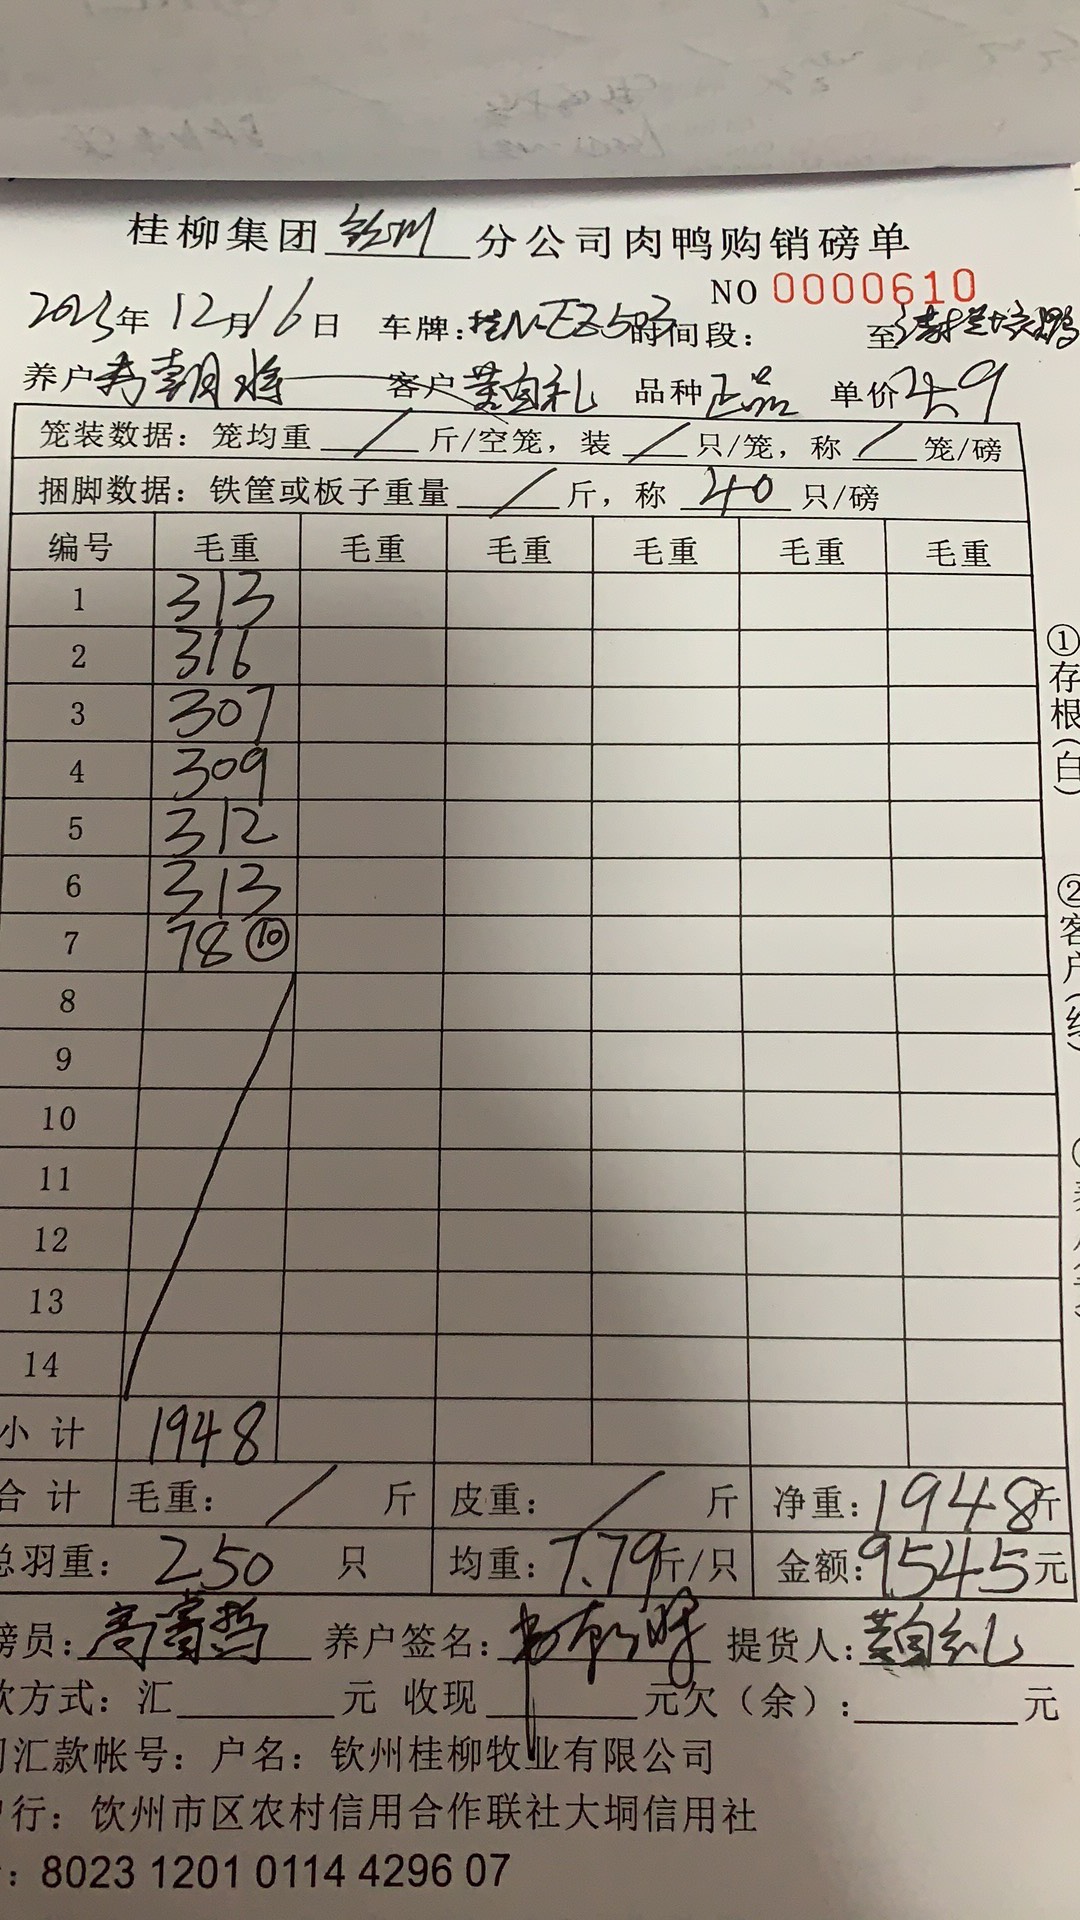 桂柳集团钦州分公司肉鸭购销磅单
NO 0000610
2023年12月16日 车牌:桂N-EZ503时间段: 至
养户 客户黄自礼 品种正品 单价4.9
笼装数据: 笼均重 / 斤/空笼, 装 / 只/笼, 称 / 笼/磅
捆脚数据: 铁筐或板子重量 / 斤, 称 40 只/磅
编号 毛重 毛重 毛重 毛重 毛重 毛重
1 313
2 316
3 307
4 309
5 312
6 313
7 78 ⑩
8
9
10
11
12
13
14
小计 1948
合计 毛重: / 斤 皮重: / 斤 净重: 1948斤
总羽重: 250 只 均重: 7.79斤/只 金额: 9545元
磅员: 养户签名: 提货人: 黄自礼
款方式: 汇 元 收现 元欠（余）: 元
汇款帐号: 户名: 钦州桂柳牧业有限公司
行: 钦州市区农村信用合作联社大垌信用社
: 8023 1201 0114 4296 07
①存根(白)
②客户(红)